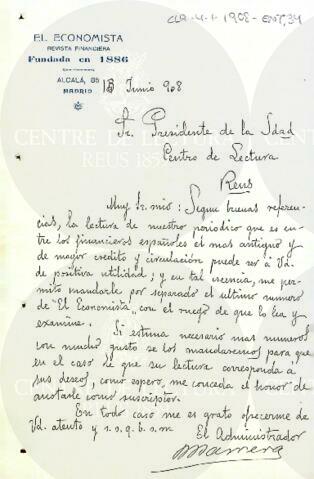 CLR-4-1-1908-ENT,34
EL ECONOMISTA
REVISTA FINANCIERA
Fundada en 1886
ALCALÁ,
MADRID
18 Junio 908
Sr. Presidente de la Sdad
Centro de Lectura
Reus
CENTRE DE LECTURA
REUS 1859
Muy Sr. mio: Segun buenas referen-
cias, la lectura de nuestro periodico que es en-
tre los financieros españoles el mas antiguo y
de mayor credito y circulación puede ser á Vd.
de positiva utilidad; y en tal creencia, me per-
mito mandarle por separado el ultimo numero
de "El Economista" con el ruego de que lo lea y
examine.
Si estima necesario mas numeros
con mucho gusto se los mandaremos para que
en el caso de que su lectura corresponda á
sus deseos, como espero, me conceda el honor de
anotarle como suscriptor.
En todo caso me es grato ofrecerme de
Vd. atento y s. s. q. b. s. m
El Administrador